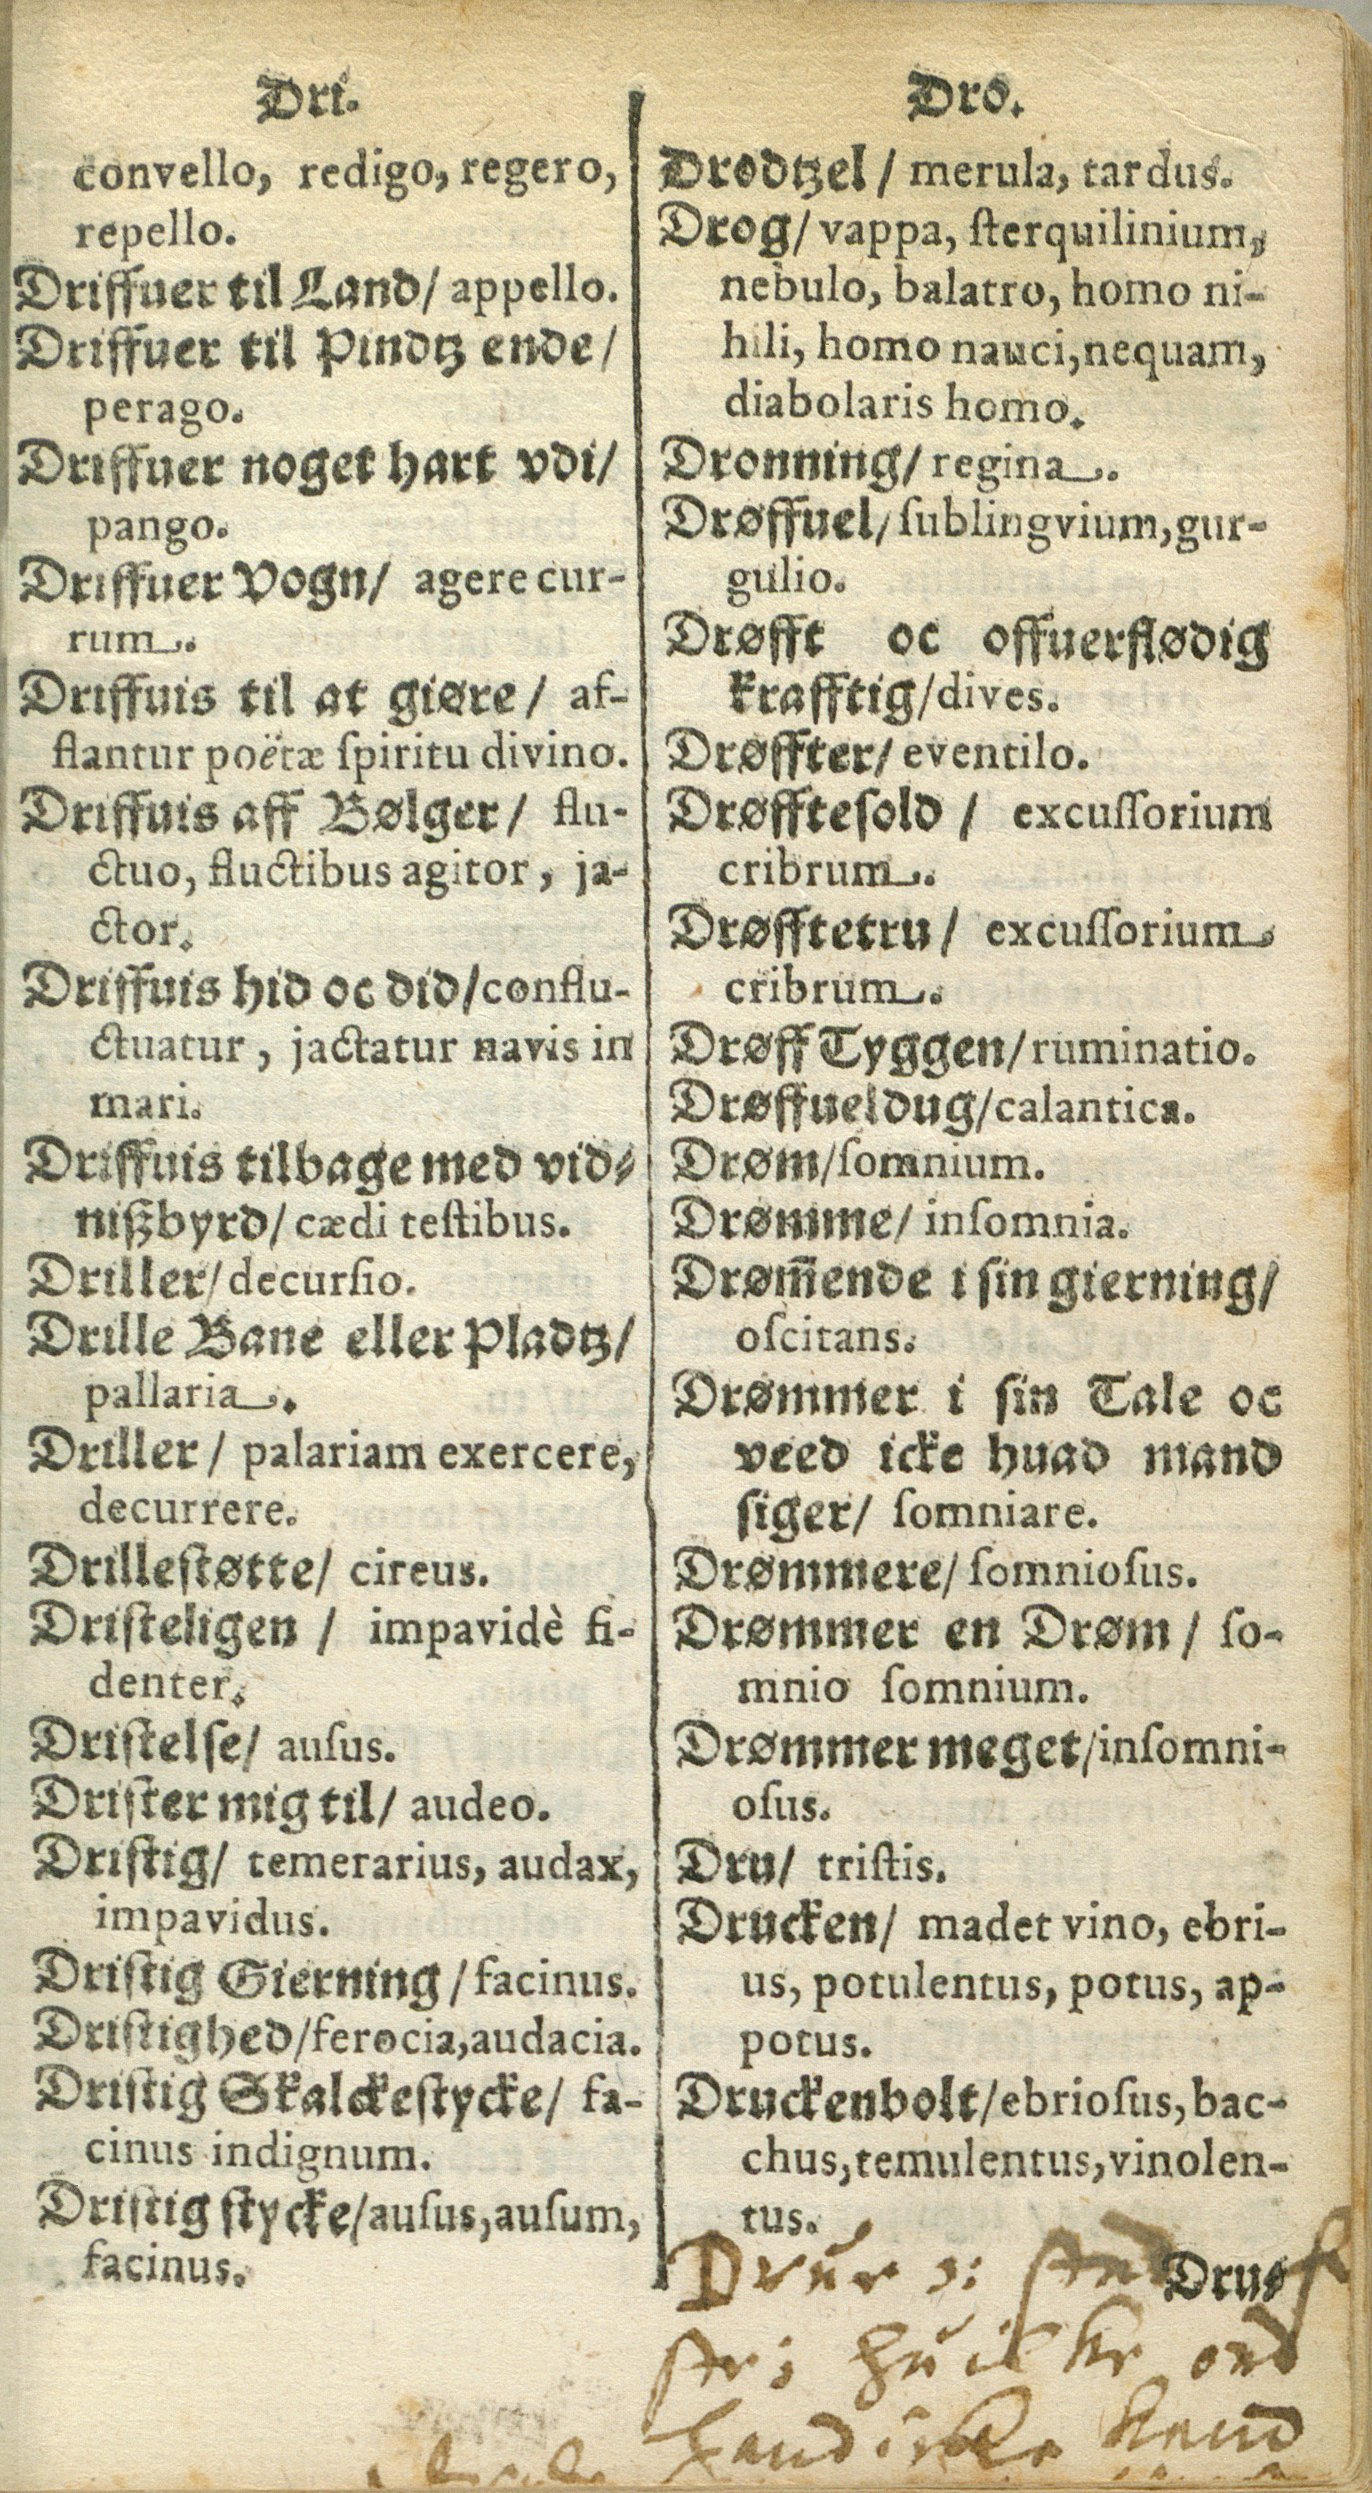 Dri.
convello, redigo, regero,
repello.
Driffuer til Land/ appello.
Driffuer til Pindtz ende/
perago.
Driffuer noget hart vdi/
pango.
Driffuer Vogn/ agere cur-
rum.
Driffuis til at giøre/ af-
flantur poëtæ ſpiritu divino.
Driffuis aff Bølger/ flu-
ctuo, fluctibus agitor, ja-
ctor.
Driffuis hid oc did/ conflu-
ctuatur, jactatur navis in
mari.
Driffuis tilbage med vid-
nißbyrd/ cædi teſtibus.
Driller/ decurſio.
Drille Bane eller Pladtz/
pallaria.
Driller/ palariam exercere,
decurrere.
Drilleſtøtte/ cireus.
Driſteligen / impavidè fi-
denter.
Driſtelſe/ auſus.
Driſter mig til/ audeo.
Driſtig/ temerarius, audax,
impavidus.
Driſtig Gierning / facinus.
Driſtighed/ ferocia, audacia.
Driſtig Skalckeſtycke/ fa-
cinus indignum.
Driſtig ſtycke/ auſus, auſum,
facinus.
Dro.
Drodtzel / merula, tardus.
Drog/ vappa, ſterquilinium,
nebulo, balatro, homo ni-
hili, homo nauci, nequam,
diabolaris homo.
Dronning/ regina.
Drøffuel/ ſublingvium, gur-
gulio.
Drøfft oc offuerflødig
krafftig/ dives.
Drøffter/ eventilo.
Drøffteſold / excuſſorium
cribrum.
Drøfftetru/ excuſſorium
cribrum.
Drøff Tyggen/ ruminatio.
Drøffueldug/ calantica.
Drøm/ ſomnium.
Drømme/ inſomnia.
Drøm̅ende i ſin gierning/
oſcitans.
Drømmer i ſin Tale oc
veed icke huad mand
ſiger/ ſomniare.
Drømmere/ ſomnioſus.
Drømmer en Drøm / ſo-
mnio ſomnium.
Drømmer meget/ inſomni-
oſus.
Dru/ triſtis.
Drucken/ madet vino, ebri-
us, potulentus, potus, ap-
potus.
Druckenbolt/ ebrioſus, bac-
chus, temulentus, vinolen-
tus.
Drus